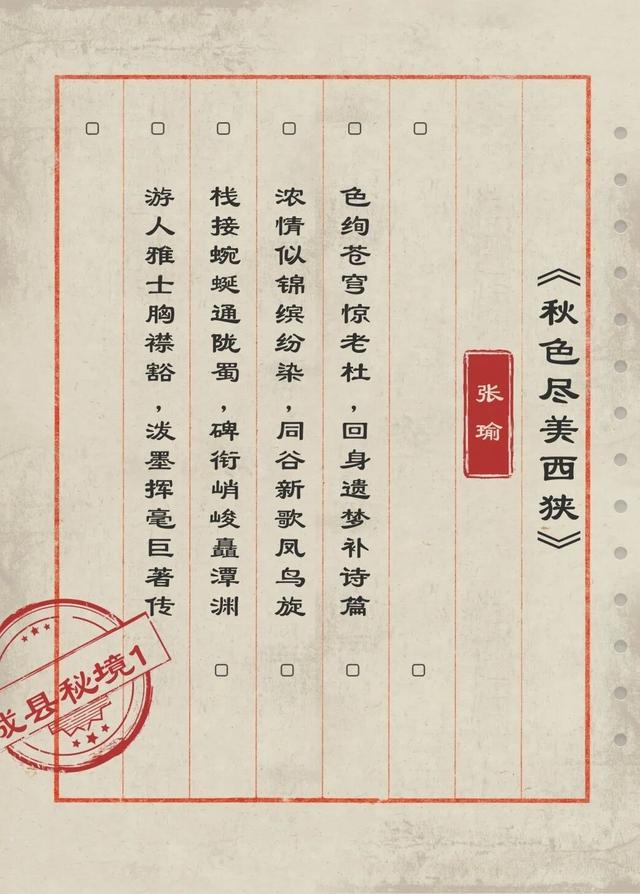 《秋色尽美西狭》
张瑜
色绚苍穹惊老杜，回身遗梦补诗篇
浓情似锦缤纷染，同谷新歌凤鸟旋
栈接蜿蜒通陇蜀，碑衔峭峻矗潭渊
游人雅士胸襟豁，泼墨挥毫巨著传
成县秘境1